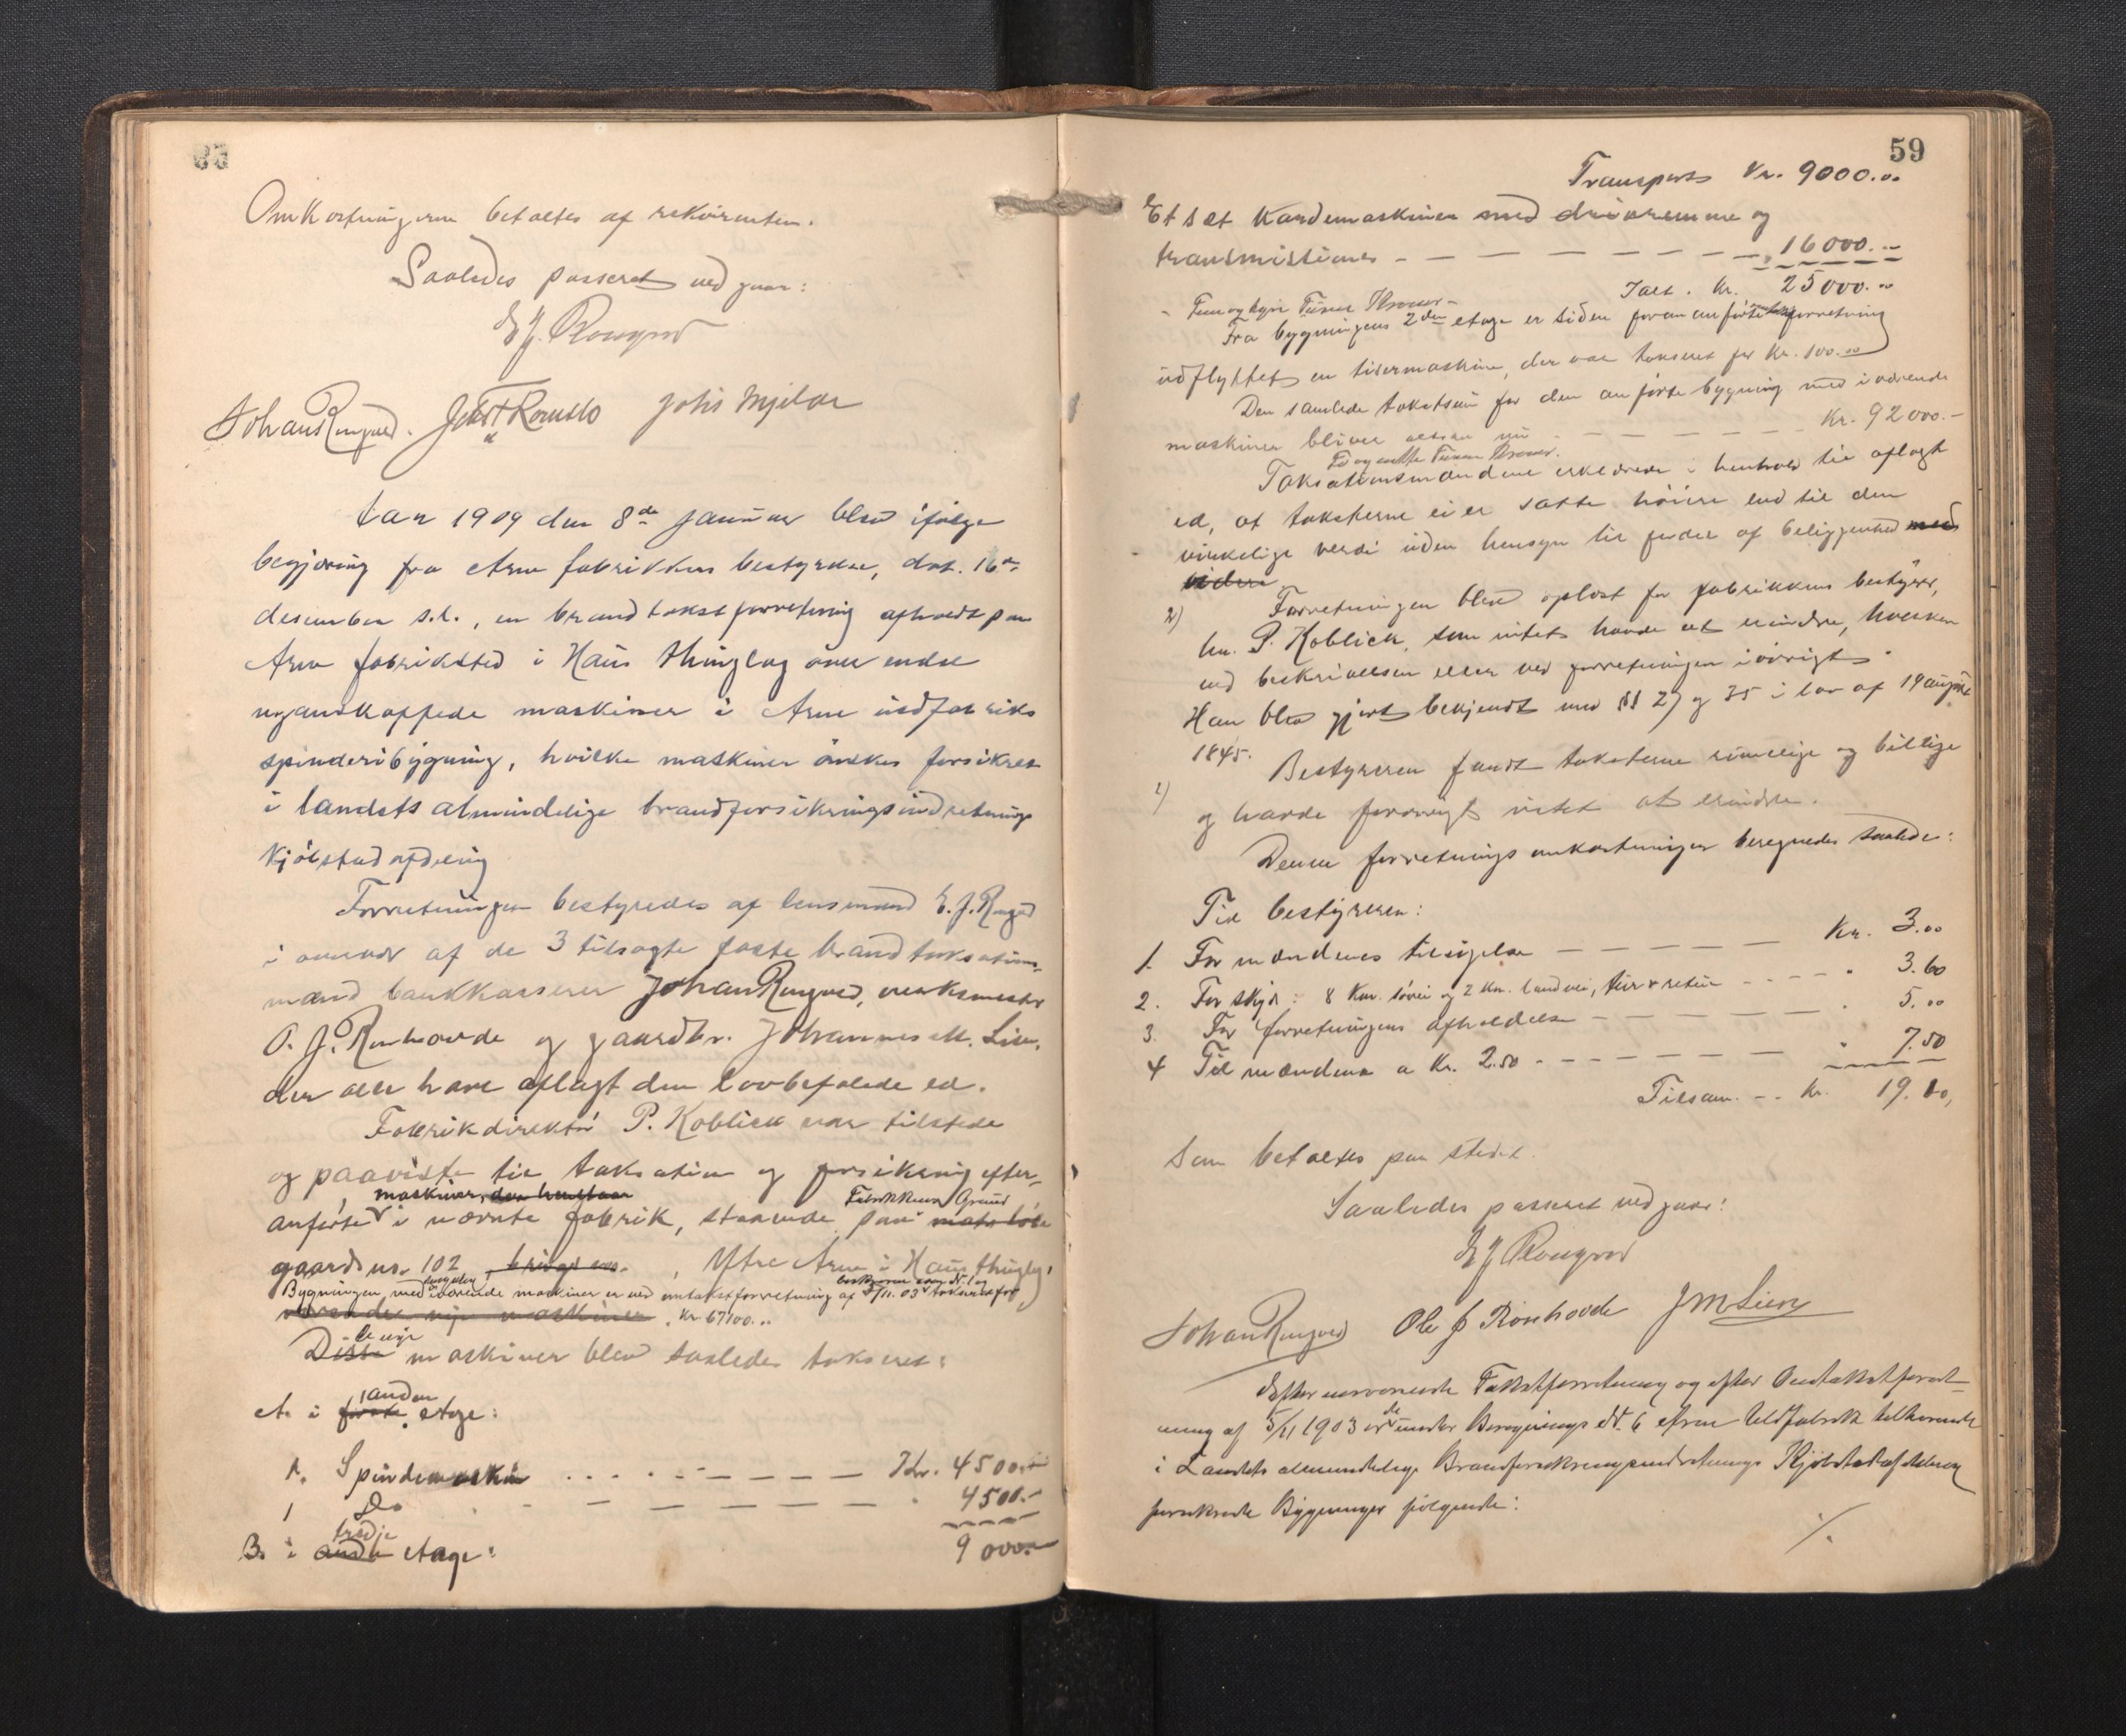 Omkostningerne betaltes af rekvirenten.
Saaledes passeret vedgaar:
E J. Rongved
Johan Rongved. Johs Mjelde
Aar 1909 den 8de januar blev ifølge
begjæring fra Arne fabrikkers bestyrelse, dat. 16de
desember s.l., en brandtakstforretning afholdt paa
Arne fabriksted i Haus thinglag over endel
nyanskaffede maskiner i Arne uldfabriks
spinderibygning, hvilke maskiner ønskes forsikret
i landets almindelige brandforsikringsindretnings
kjøbstadafdeling
Forretningen bestyredes af lensmand E. J. Rongved
i overvær af de 3 tilsagte faste brandtaksations-
mænd bankkasserer Johan Rongved, verksmester
O. J. Romhovde og gaardbr. Johannes M. Lien,
der alle have aflagt den lovbefalede ed.
Fabrikdirektør P. Koblick var tilstede
og paaviste til taksation og forsikring efter-
maskiner, Fabrikkens Grund
anførte i nævnte fabrik, staaende paa
gaards no. 102, Ytre Arne i Haus thinglag.
Bygningen med iværende maskiner er ved omtakstforretning af 5/11. 03 takseret for
Kr 67100.00
de nye
Disse maskiner blev saaledes takseret:
anden
A. i første etage:
1. Spindemaskin Kr. 4500.00
1 Do 4500.-
tredje
B. i anden etage: 9000.-
59
Transport Kr. 9000.00
Et sæt Kardemaskiner med drivremme og
transmissioner 16000.-
Ialt. Kr. 25000.00
Fem og tyve Tusen Kroner-
Fra bygningens 2den etage er siden foran anførte forretning
udflyttet en tisermaskine, der var takseret for Kr. 100.00
Den samlede takstsum for den anførte bygning med iværende
maskiner bliver altsaa nu Kr. 92000.-
To og nitti Tusen Kroner.
Taksationsmændene erklærede i henhold til aflagt
ed, at taksterne ei er satte høiere end til den
virkelige verdi uden hensyn til fordel af beliggenhed med
viden
2) Forretningen blev oplæst for fabrikkens bestyrer,
hr. P. Koblick, som intet havde at erindre, hverken
ved beskrivelsen eller ved forretningen iøvrigt.
Han blev gjort bekjendt med §§ 27 og 35 i lov af 19 august
1845.
1) Bestyreren fandt taksterne rimelige og billige
og havde forøvrigt intet at erindre.
Denne forretnings omkostninger beregnedes saaledes:
Til bestyreren:
1. For mændenes tilsigelse Kr. 3.00
2. For skyds: 8 Km. søvei og 2 Km. landvei, tur & retur 3.60
3. For forretningens afholdelse 5.00
4 Til mændene a Kr. 2.50 7.50
Tilsam. Kr. 19.10,
Som betaltes paa stedet.
Saaledes passeret vedgaar:
E J Rongved
Johan Rongved Ole J Romhovde J M Lien
Efter nærværende Takstforretning og efter Omtakstforret-
ning af 5/11 1903 er de under Bevognings No. 6 Arne Uldfabrik tilhørende
i Landets almindelige Brandforsikringsindretnings Kjøbstadafdeling
forsikrede Bygninger følgende:
./.